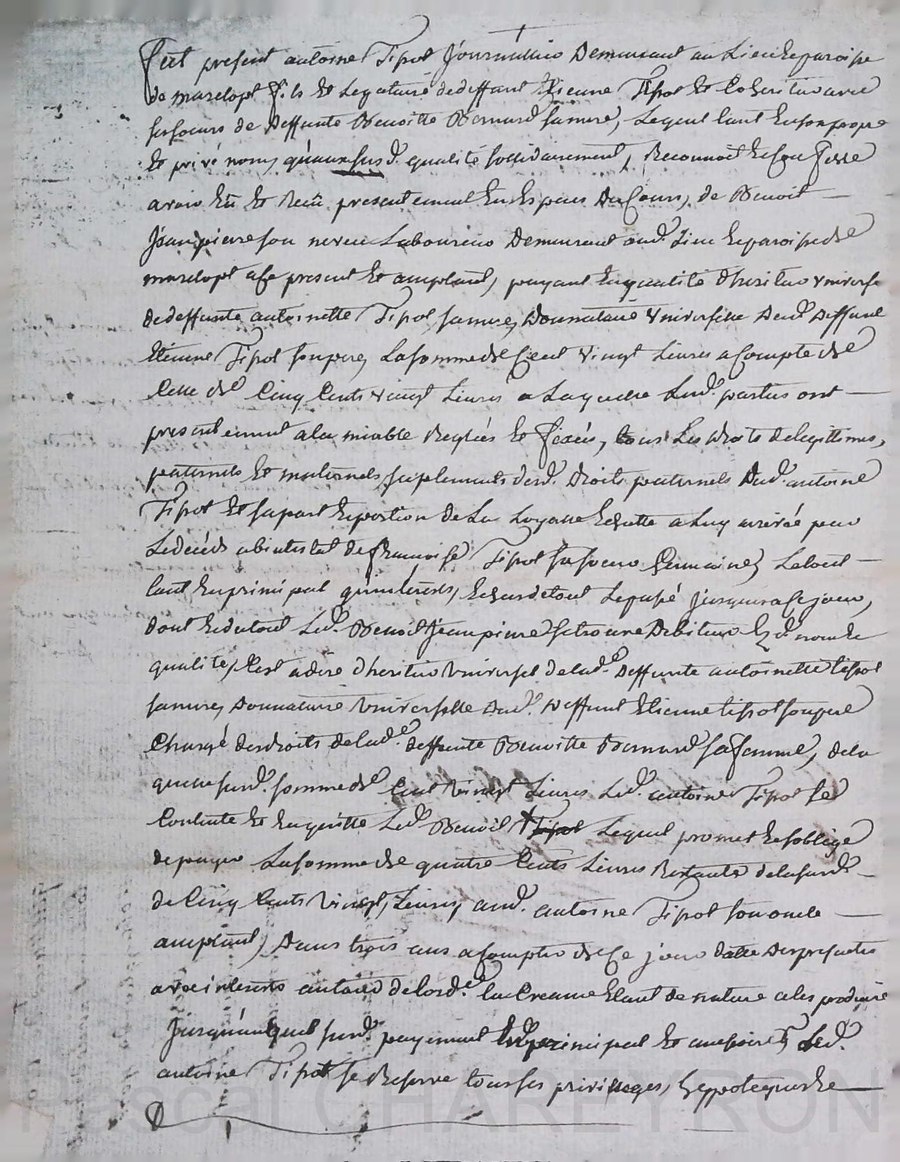 fut present antoine Tipot Journallier Demeurant au Lieu & paroisse
de marclopt fils Et Legataire dedeffunt Etienne Tipot Et Coheritier avec
ses soeurs de deffunte Benoitte Bernard sa mere, Lequel tant En son propre
Et privé nom, qu'aux susd. qualité sollidairement, Reconnoit & Confesse
avoir Eu Et Reçu presentement En Especes du Cours, de Benoit
Jean pierre son neveu Laboureur Demeurant aud. Lieu & paroisse de
marclopt a Ce present Et acceptant, payant En qualité d'heritier universel
de deffunte antoinette Tipot sa mere, Donnataire universelle dud. deffunt
Etienne Tipot son pere, La somme de Cent vingt Livres a Compte de
Celle de Cinq Cents vingt Livres a Laquelle Lesd. parties ont
presentement a la miable Reglés Et fixés, tous Les droits de legittimes,
paternels Et maternels, suplements desd. droits paternels dud. antoine
Tipot Et sa part & portion de La Loyasse Echutte a Luy arrivée par
Le deceds abintestat de françoise Tipot sa soeur Germaine, Le tout
tant En principal qu'interets, Echus de tout Le passé Jusqu'a Ce jour,
dont Et du tout Led. Benoit Jean pierre se trouve Debiteur Esd. noms &
qualité, C'est a dire d'heritier universel de lad. deffunte antoinette tipot
sa mere, Donnataire universelle dud. deffunt Etienne tipot son pere
Chargé des droits de lad. deffunte Benoitte Bernard sa femme, de la
quelle susd. somme de Cent vingt Livres Led. antoine Tipot se
Contente Et En quitte Led. Benoit Lequel promet & s'oblige
de payer La somme de quatre Cents Livres Restante de la susd.
de Cinq Cents vingt Livres, aud. antoine Tipot son oncle
acceptant, Dans trois ans a Compter de Ce jour datte des presentes
avec interets au taux de L'ord. La Creance Etant de nature a les produire
Jusqu'auquel susd. payement En principal Et accessoires Led.
antoine Tipot se Reserve tous ses privilleges, hyppoteques &